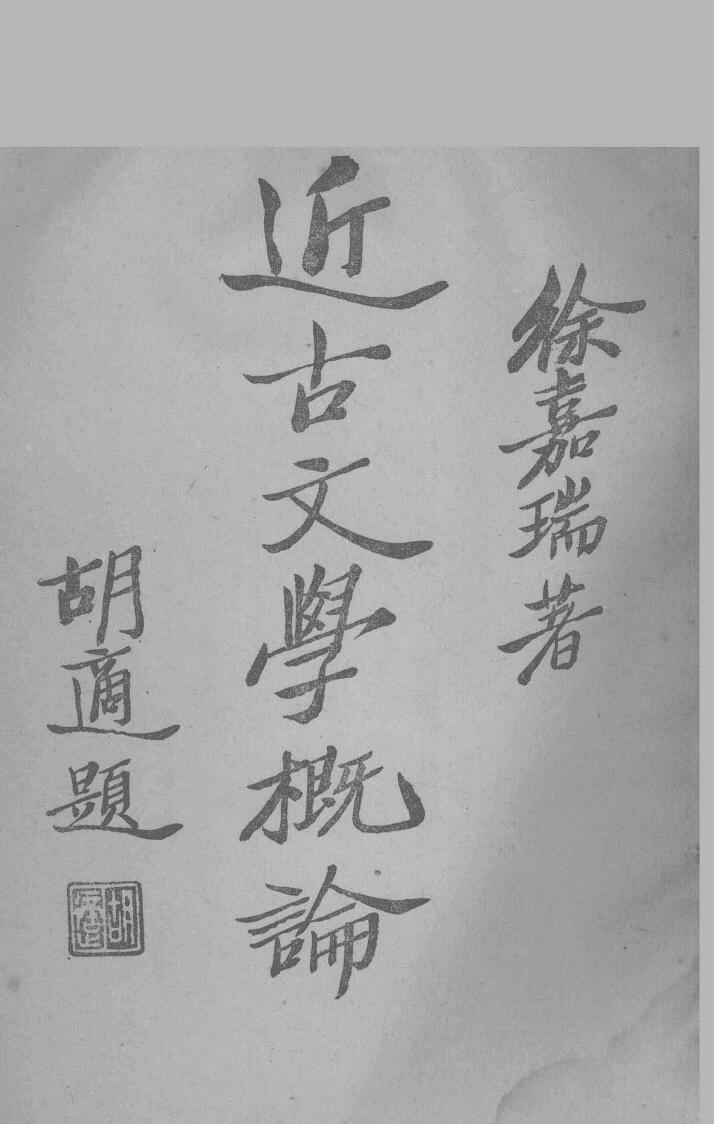 徐嘉瑞著
近古文學概論
胡適題